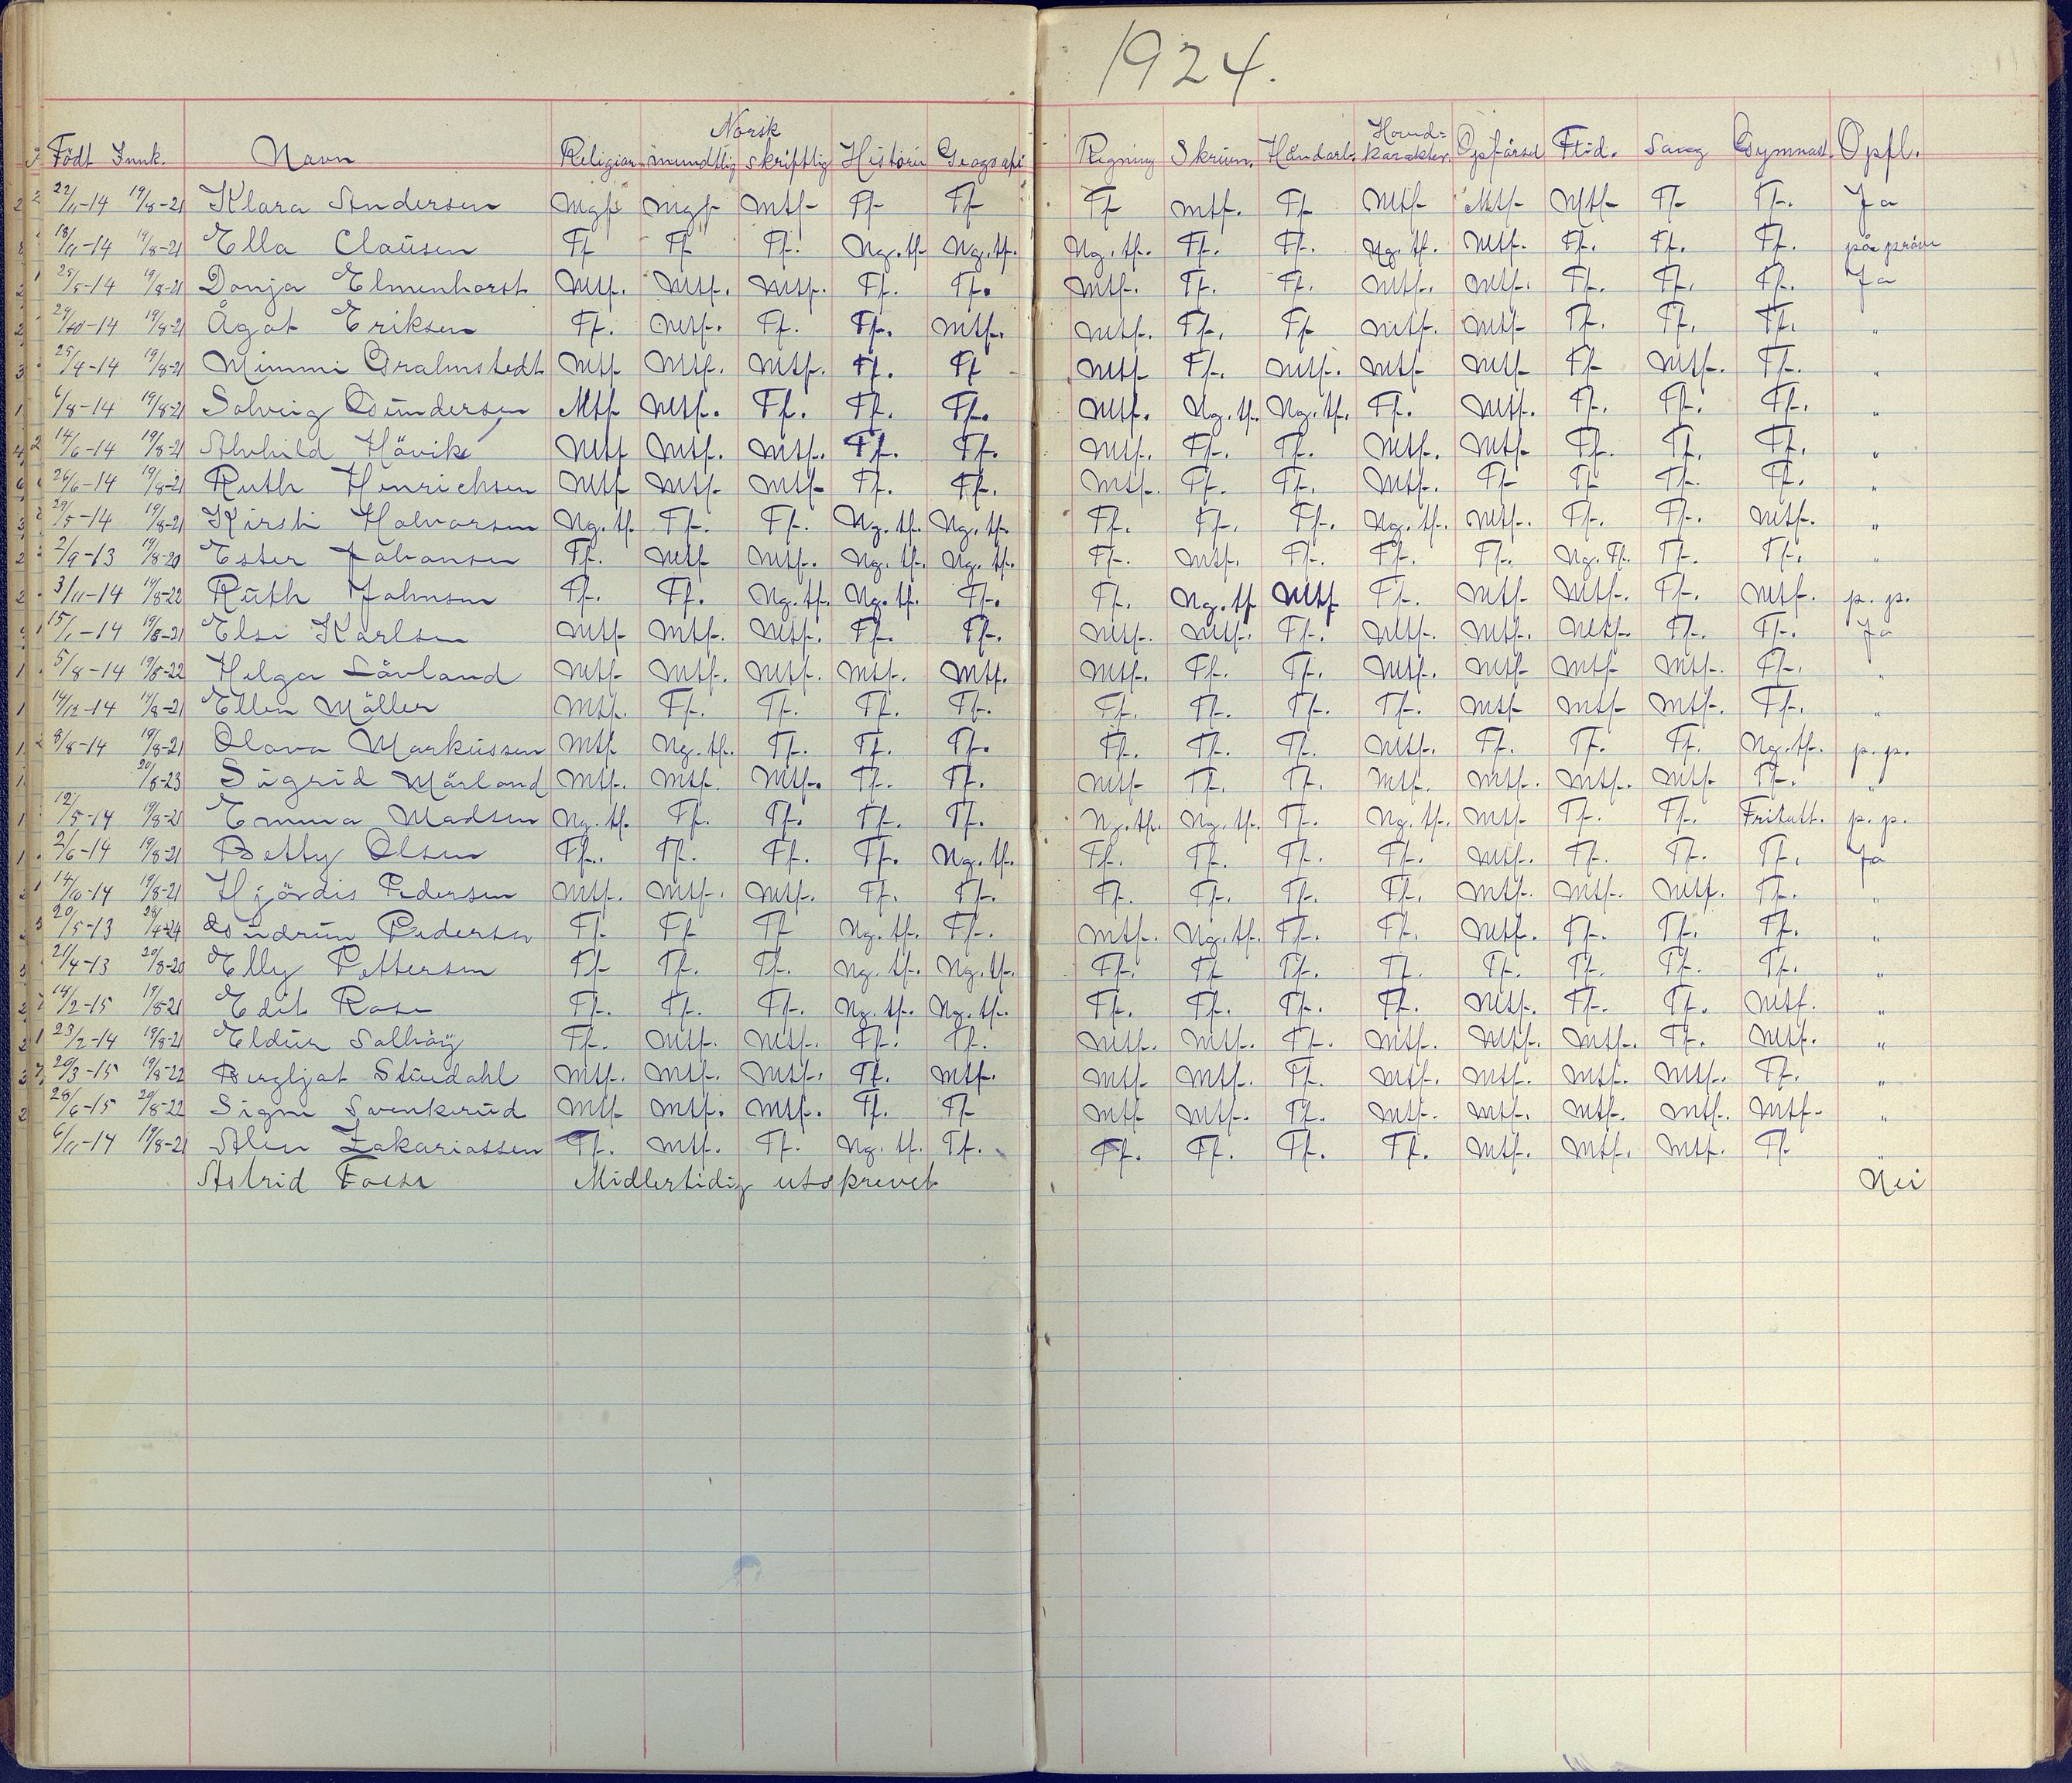 1924.
Norsk
Födt Innk. Navn Religion mundtlig skriftlig Historie Geografi Regning Skrivn. Håndarb. Hovedkarakter. Opförsel Flid. Sang Gymnast. Opfl.
22/11-14 19/8-21 Klara Andersen Mgf Mgf Mtf Tf Tf Tf Mtf. Tf Mtf Mtf Mtf Tf Tf. Ja
18/11-14 19/8-21 Ella Clausen Tf Tf Tf. Ng.tf. Ng.tf. Ng.tf. Tf. Tf. Ng.tf. Mtf. Tf. Tf. Tf. på pröve
25/5-14 19/8-21 Donja Elmenhorst Mtf. Mtf. Mtf. Tf. Tf. Mtf. Tf. Tf. Mtf. Mtf. Tf. Tf. Tf. Ja
29/10-14 19/8-21 Ågot Eriksen Tf. Mtf. Tf. Tf. Mtf. Mtf. Tf. Tf Mtf. Mtf Tf. Tf. Tf. "
25/4-14 19/8-21 Mimmi Gralmstedt Mtf Mtf. Mtf. Tf. Tf Mtf Tf. Mtf. Mtf Mtf Tf Mtf. Tf. "
6/8-14 19/8-21 Solveig Gundersen Mtf Mtf. Tf. Tf. Tf. Mtf. Ng.tf. Ng.tf. Tf. Mtf. Tf. Tf. Tf. "
14/6-14 19/8-21 Alvhild Hövik Mtf Mtf. Mtf. Tf. Tf. Mtf. Tf. Tf. Mtf. Mtf. Tf. Tf. Tf. "
26/6-14 19/8-21 Ruth Henrichsen Mtf Mtf Mtf Tf. Tf. Mtf. Tf. Tf. Mtf. Tf Tf Tf. Tf. "
29/5-14 19/8-21 Kirsti Halvorsen Ng.tf. Tf. Tf. Ng.tf. Ng.tf. Tf. Tf. Tf. Ng.tf. Mtf. Tf. Tf. Mtf. "
2/9-13 19/8-20 Ester Johansen Tf. Mtf Mtf. Ng.tf. Ng.tf. Tf. Mtf. Tf. Tf. Tf. Ng.Tf. Tf. Tf. "
3/11-14 19/8-22 Ruth Johnsen Tf. Tf. Ng.tf. Ng.tf. Tf. Tf. Ng.tf Mtf Tf. Mtf Mtf. Tf. Mtf. p.p.
15/1-14 19/8-21 Else Karlsen Mtf Mtf. Mtf. Tf. Tf. Mtf. Mtf. Tf. Mtf. Mtf. Mtf. Tf. Tf. Ja
5/8-14 19/8-22 Helga Lövland Mtf Mtf. Mtf. Mtf. Mtf. Mtf. Tf. Tf. Mtf. Mtf Mtf Mtf. Tf. "
14/12-14 19/8-21 Ellen Möller Mtf. Tf. Tf. Tf. Tf. Tf. Tf. Tf. Tf. Mtf Mtf Mtf. Tf. "
8/8-14 19/8-21 Olava Markussen Mtf Ng.tf. Tf. Tf. Tf. Tf. Tf. Tf. Mtf. Tf. Tf. Tf. Ng.tf. p.p.
20/8-23 Sigrid Mörland Mtf. Mtf. Mtf. Tf. Tf. Mtf Tf. Tf. Mtf. Mtf. Mtf. Mtf Tf. "
12/5-14 19/8-21 Emma Madsen Ng.tf. Tf. Tf. Tf. Tf. Ng.tf. Ng.tf. Tf. Ng.tf. Mtf Tf. Tf. Fritatt. p.p.
2/6-14 19/8-21 Betty Olsen Tf. Tf. Tf. Tf. Ng.tf. Tf. Tf. Tf. Tf. Mtf. Tf. Tf. Tf. Ja
14/10-14 19/8-21 Hjördis Pedersen Mtf. Mtf. Mtf. Tf. Tf. Tf. Tf. Tf. Tf. Mtf. Mtf. Mtf. Tf. "
20/5-13 28/4-24 Gudrun Pedersen Tf. Tf Tf Ng.tf. Tf. Mtf. Ng.tf. Tf. Tf. Mtf. Tf. Tf. Tf. "
21/4-13 20/8-20 Elly Pettersen Tf Tf. Tf. Ng.tf. Ng.tf. Tf. Tf Tf. Tf. Tf. Tf. Tf. Tf. "
14/2-15 19/8-21 Edit Rose Tf. Tf. Tf. Ng.tf. Ng.tf. Tf. Tf. Tf. Tf. Mtf. Tf. Tf. Mtf. "
23/2-14 19/8-21 Eldur Solhöy Tf. Mtf. Mtf. Tf. Tf. Mtf. Mtf. Tf. Mtf. Mtf. Mtf. Tf. Mtf. "
20/3-15 19/8-22 Bergljot Stuedahl Mtf. Mtf. Mtf. Tf. Mtf. Mtf Mtf. Tf. Mtf. Mtf. Mtf. Mtf. Tf. "
28/6-15 20/8-22 Signe Svenkerud Mtf Mtf. Mtf. Tf. Tf Mtf Mtf. Tf. Mtf. Mtf. Mtf. Mtf. Mtf "
6/11-14 19/8-21 Alen Zakariassen Tf. Mtf. Tf. Ng.tf. Tf. Tf. Tf. Tf. Tf. Mtf. Mtf. Mtf. Tf. "
Astrid Foess Midlertidig utskrevet Nei